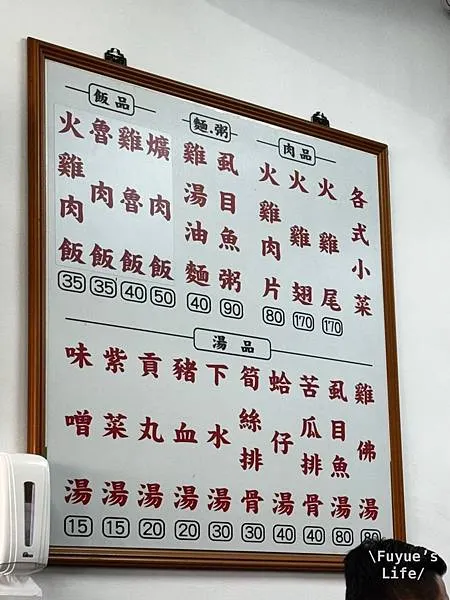 飯品
火雞肉飯 35
魯肉飯 35
雞魯飯 40
爌肉飯 50
麵.粥
雞湯油麵 40
虱目魚粥 90
肉品
火雞肉片 80
火雞翅 170
火雞尾 170
各式小菜
湯品
味噌湯 15
紫菜湯 15
貢丸湯 20
豬血湯 20
下水湯 30
筍絲排骨 30
蛤仔湯 40
苦瓜排骨 40
虱目魚湯 80
雞佛湯 80
\Fuyue's
Life/